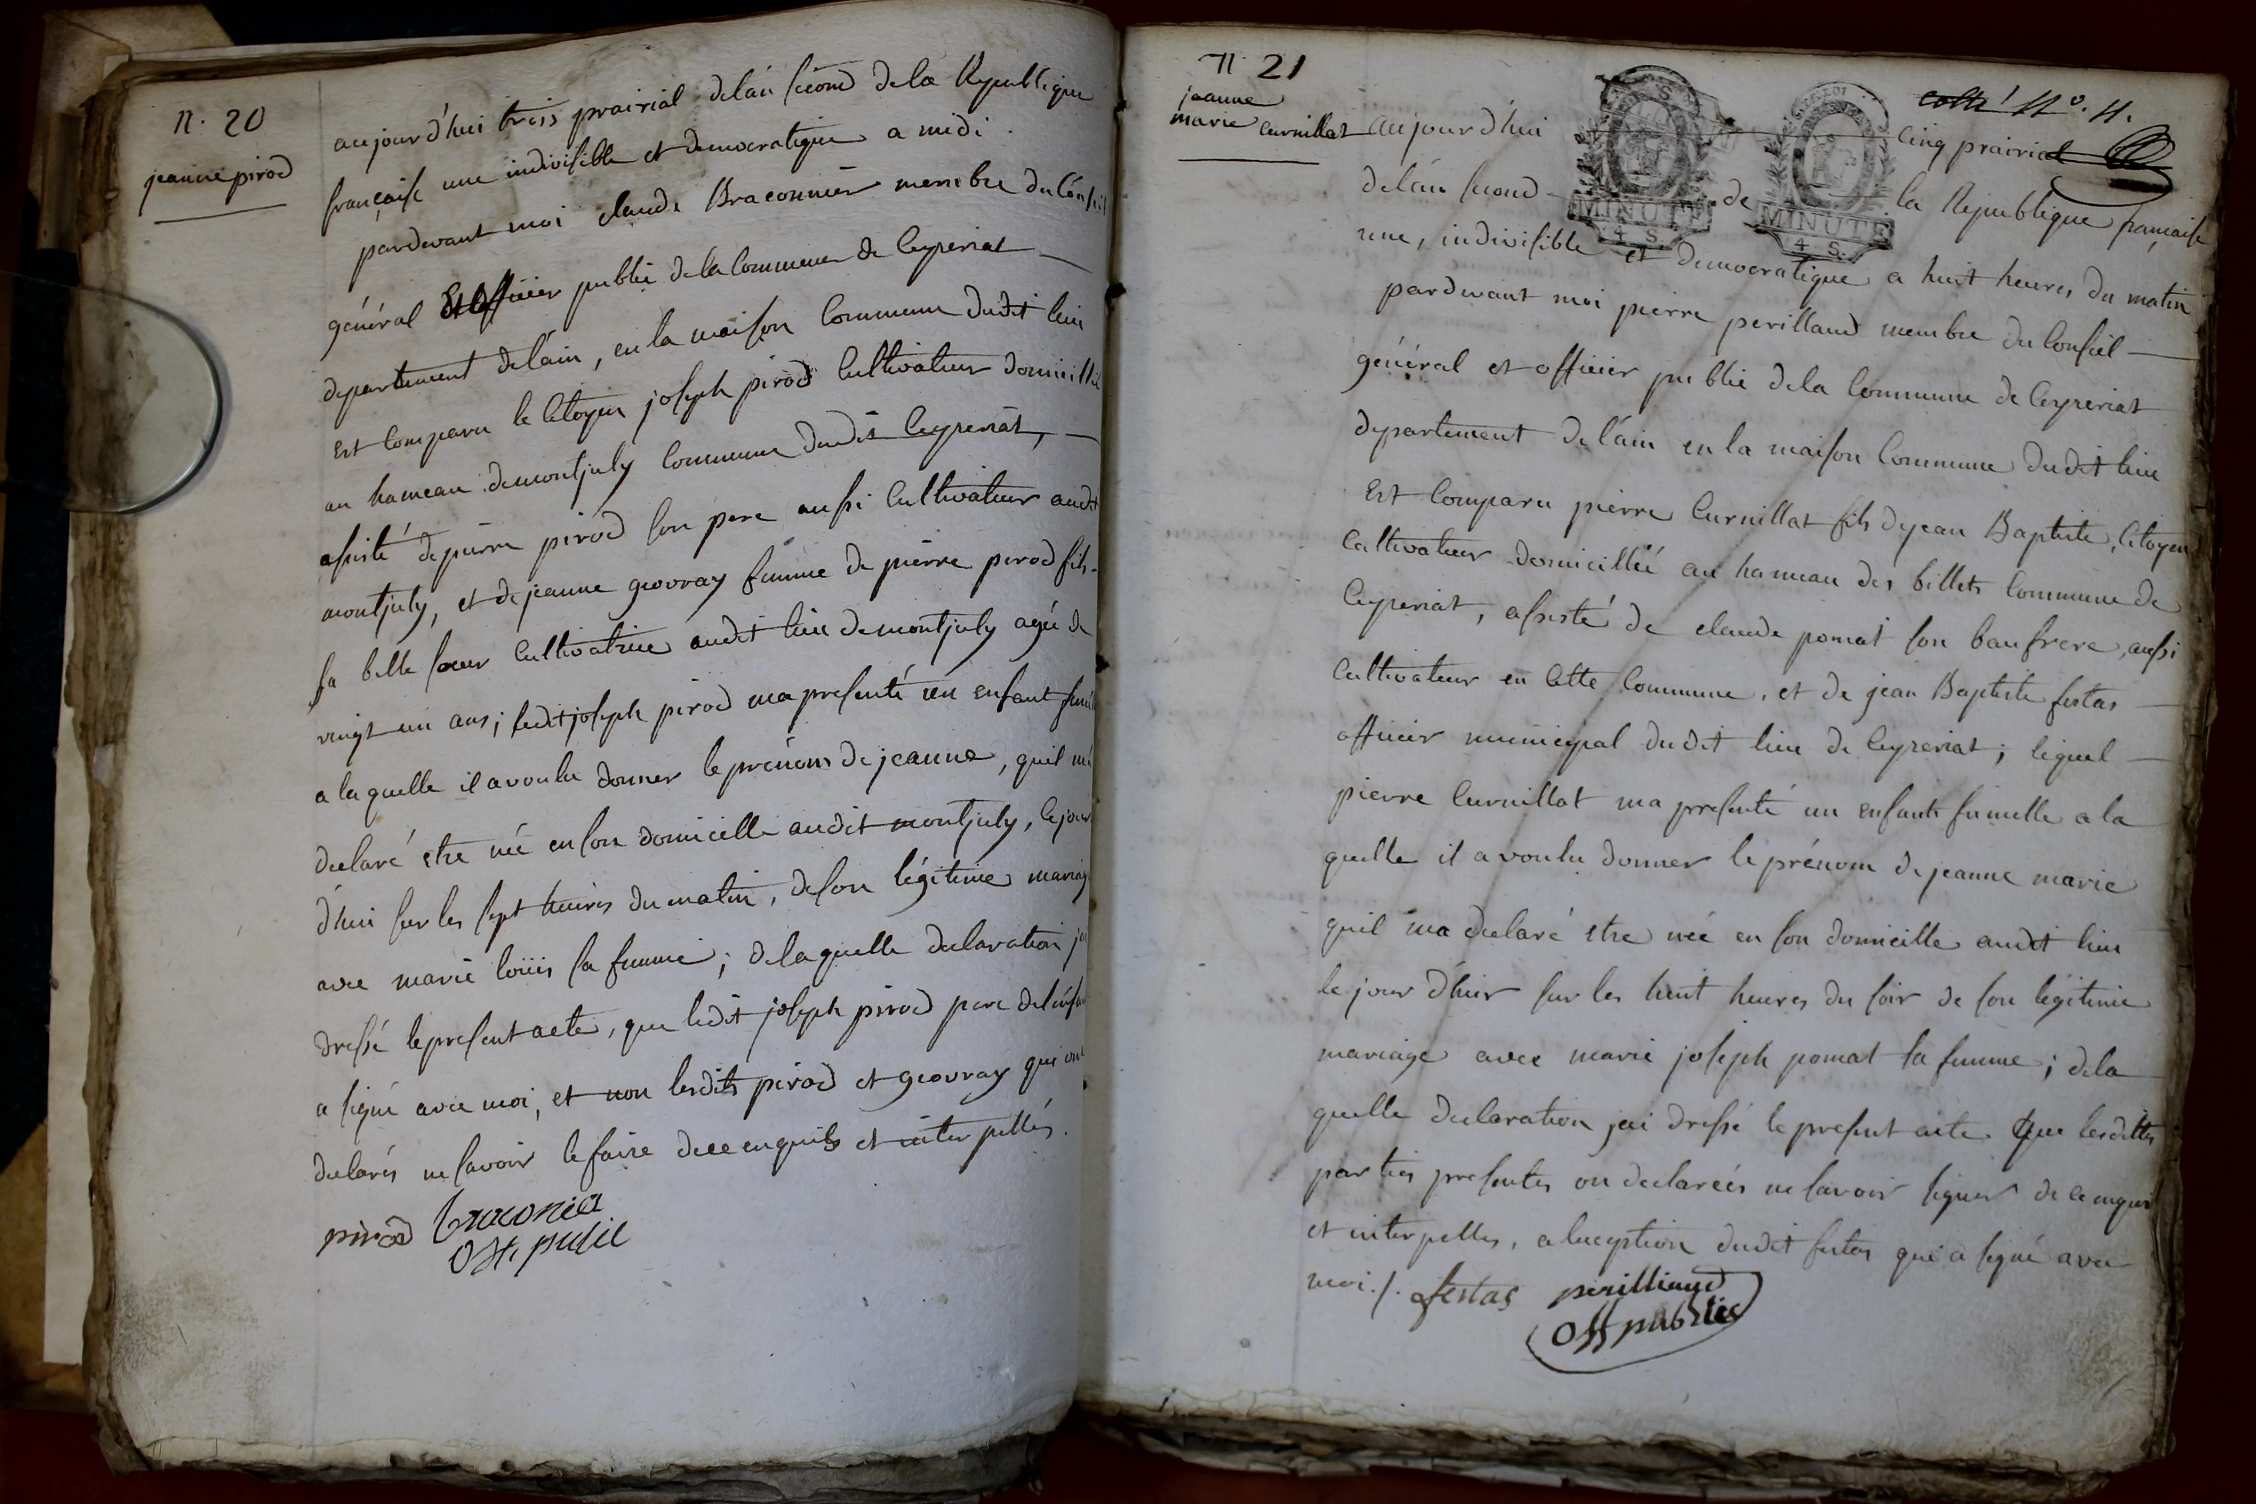 N. 20
jeanne pirod
aujourd'hui trois prairial de l'an second de la Republique
française une indivisible et democratique a midi
pardevant moi claude Braconnier membre du Conseil
général et officier public de la Commune de Ceyzeriat
departement de l'ain, en la maison Commune dudit lieu
est Comparu le Citoyen joseph pirod Cultivateur domicillié
au hameau de montjuly Commune dudit Ceyzeriat,
assisté de pierre pirod son pere aussi Cultivateur audit
montjuly, et de jeanne geovray femme de pierre pirod fils
sa belle sœur Cultivatrice audit lieu de montjuly agée de
vingt un ans; ledit joseph pirod m'a presenté un enfant femelle
a laquelle il a voulu donner le prénom de jeanne, quil m'a
declaré etre née en son domicille audit montjuly, le jour
d'hui sur les sept heures du matin, de son légitime mariage
avec marie loüis sa femme; de laquelle declaration j'ai
dressé le present acte, que ledit joseph pirod pere de l'enfant
a signé avec moi, et non lesdits pirod et geovray qui ont
declarés ne savoir le faire de ce enquis et interpellés.
pirod braconier
off. public
N. 21
jeanne
marie Curnillat
cotté N°. 11.
aujourd'hui cinq prairial
de l'an second de la Republique française
MINUTE
4 S.
MINUTE
4 S.
une, indivisible et democratique a huit heures du matin
pardevant moi pierre perilland membre du Conseil
général et officier public de la Commune de Ceyzeriat
departement de l'ain en la maison Commune dudit lieu
est Comparu pierre Curnillat fils de jean Baptiste, Citoyen
Cultivateur domicillié au hameau des billets Commune de
Ceyzeriat, assisté de claude pomat son baufrere, aussi
Cultivateur en Cette Commune, et de jean Baptiste festas
officier municipal dudit lieu de Ceyzeriat; lequel
pierre Curnillat m'a presenté un enfant femelle a la
quelle il a voulu donner le prénom de jeanne marie
quil m'a declaré etre née en son domicille audit lieu
le jour d'hier sur les huit heures du soir de son légitime
mariage avec marie joseph pomat sa femme; de la
quelle declaration j'ai dressé le present acte. Que lesdittes
parties presentes on declareés ne savoir signer de ce enquis
et interpelles, a l'exception dudit festas qui a signé avec
moi./. festas perilliand
Off public